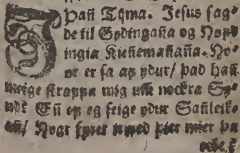 JÞan Tijma. Jesus sag-
de til Gydingana og Høf-
ingia Kieñemañaña. Hv-
or er sa af ydur/ þad hañ
meige straffa mig um nockra Sy-
nd? En ef eg seige ydur Sañleik-
añ/ Hvar fyrer trued þier mier þa
ecke?